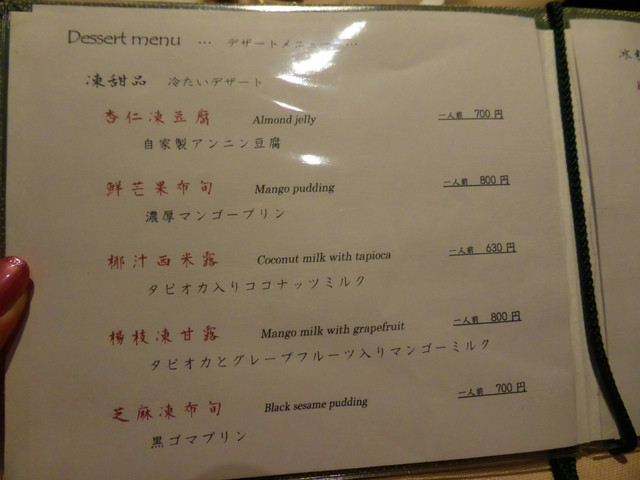 Dessert menu … デザートメニュー …
凍甜品 冷たいデザート
杏仁凍豆腐 Almond jelly 一人前 700円
自家製アンニン豆腐
鮮芒果布甸 Mango pudding 一人前 800円
濃厚マンゴープリン
椰汁西米露 Coconut milk with tapioca 一人前 630円
タピオカ入りココナッツミルク
楊枝凍甘露 Mango milk with grapefruit 一人前 800円
タピオカとグレープフルーツ入りマンゴーミルク
芝麻凍布甸 Black sesame pudding 一人前 700円
黒ゴマプリン